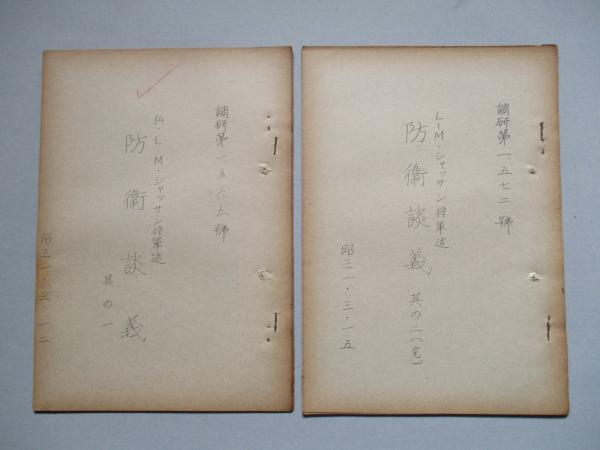 調研第一、五六五號
仏・L・M・シャッサン将軍述
防衛談義
其の一
昭三一・三・一二
調研第一、五七二號
L・M・シャッサン将軍述
防衛談義 其の二(完)
昭三一・三・一五